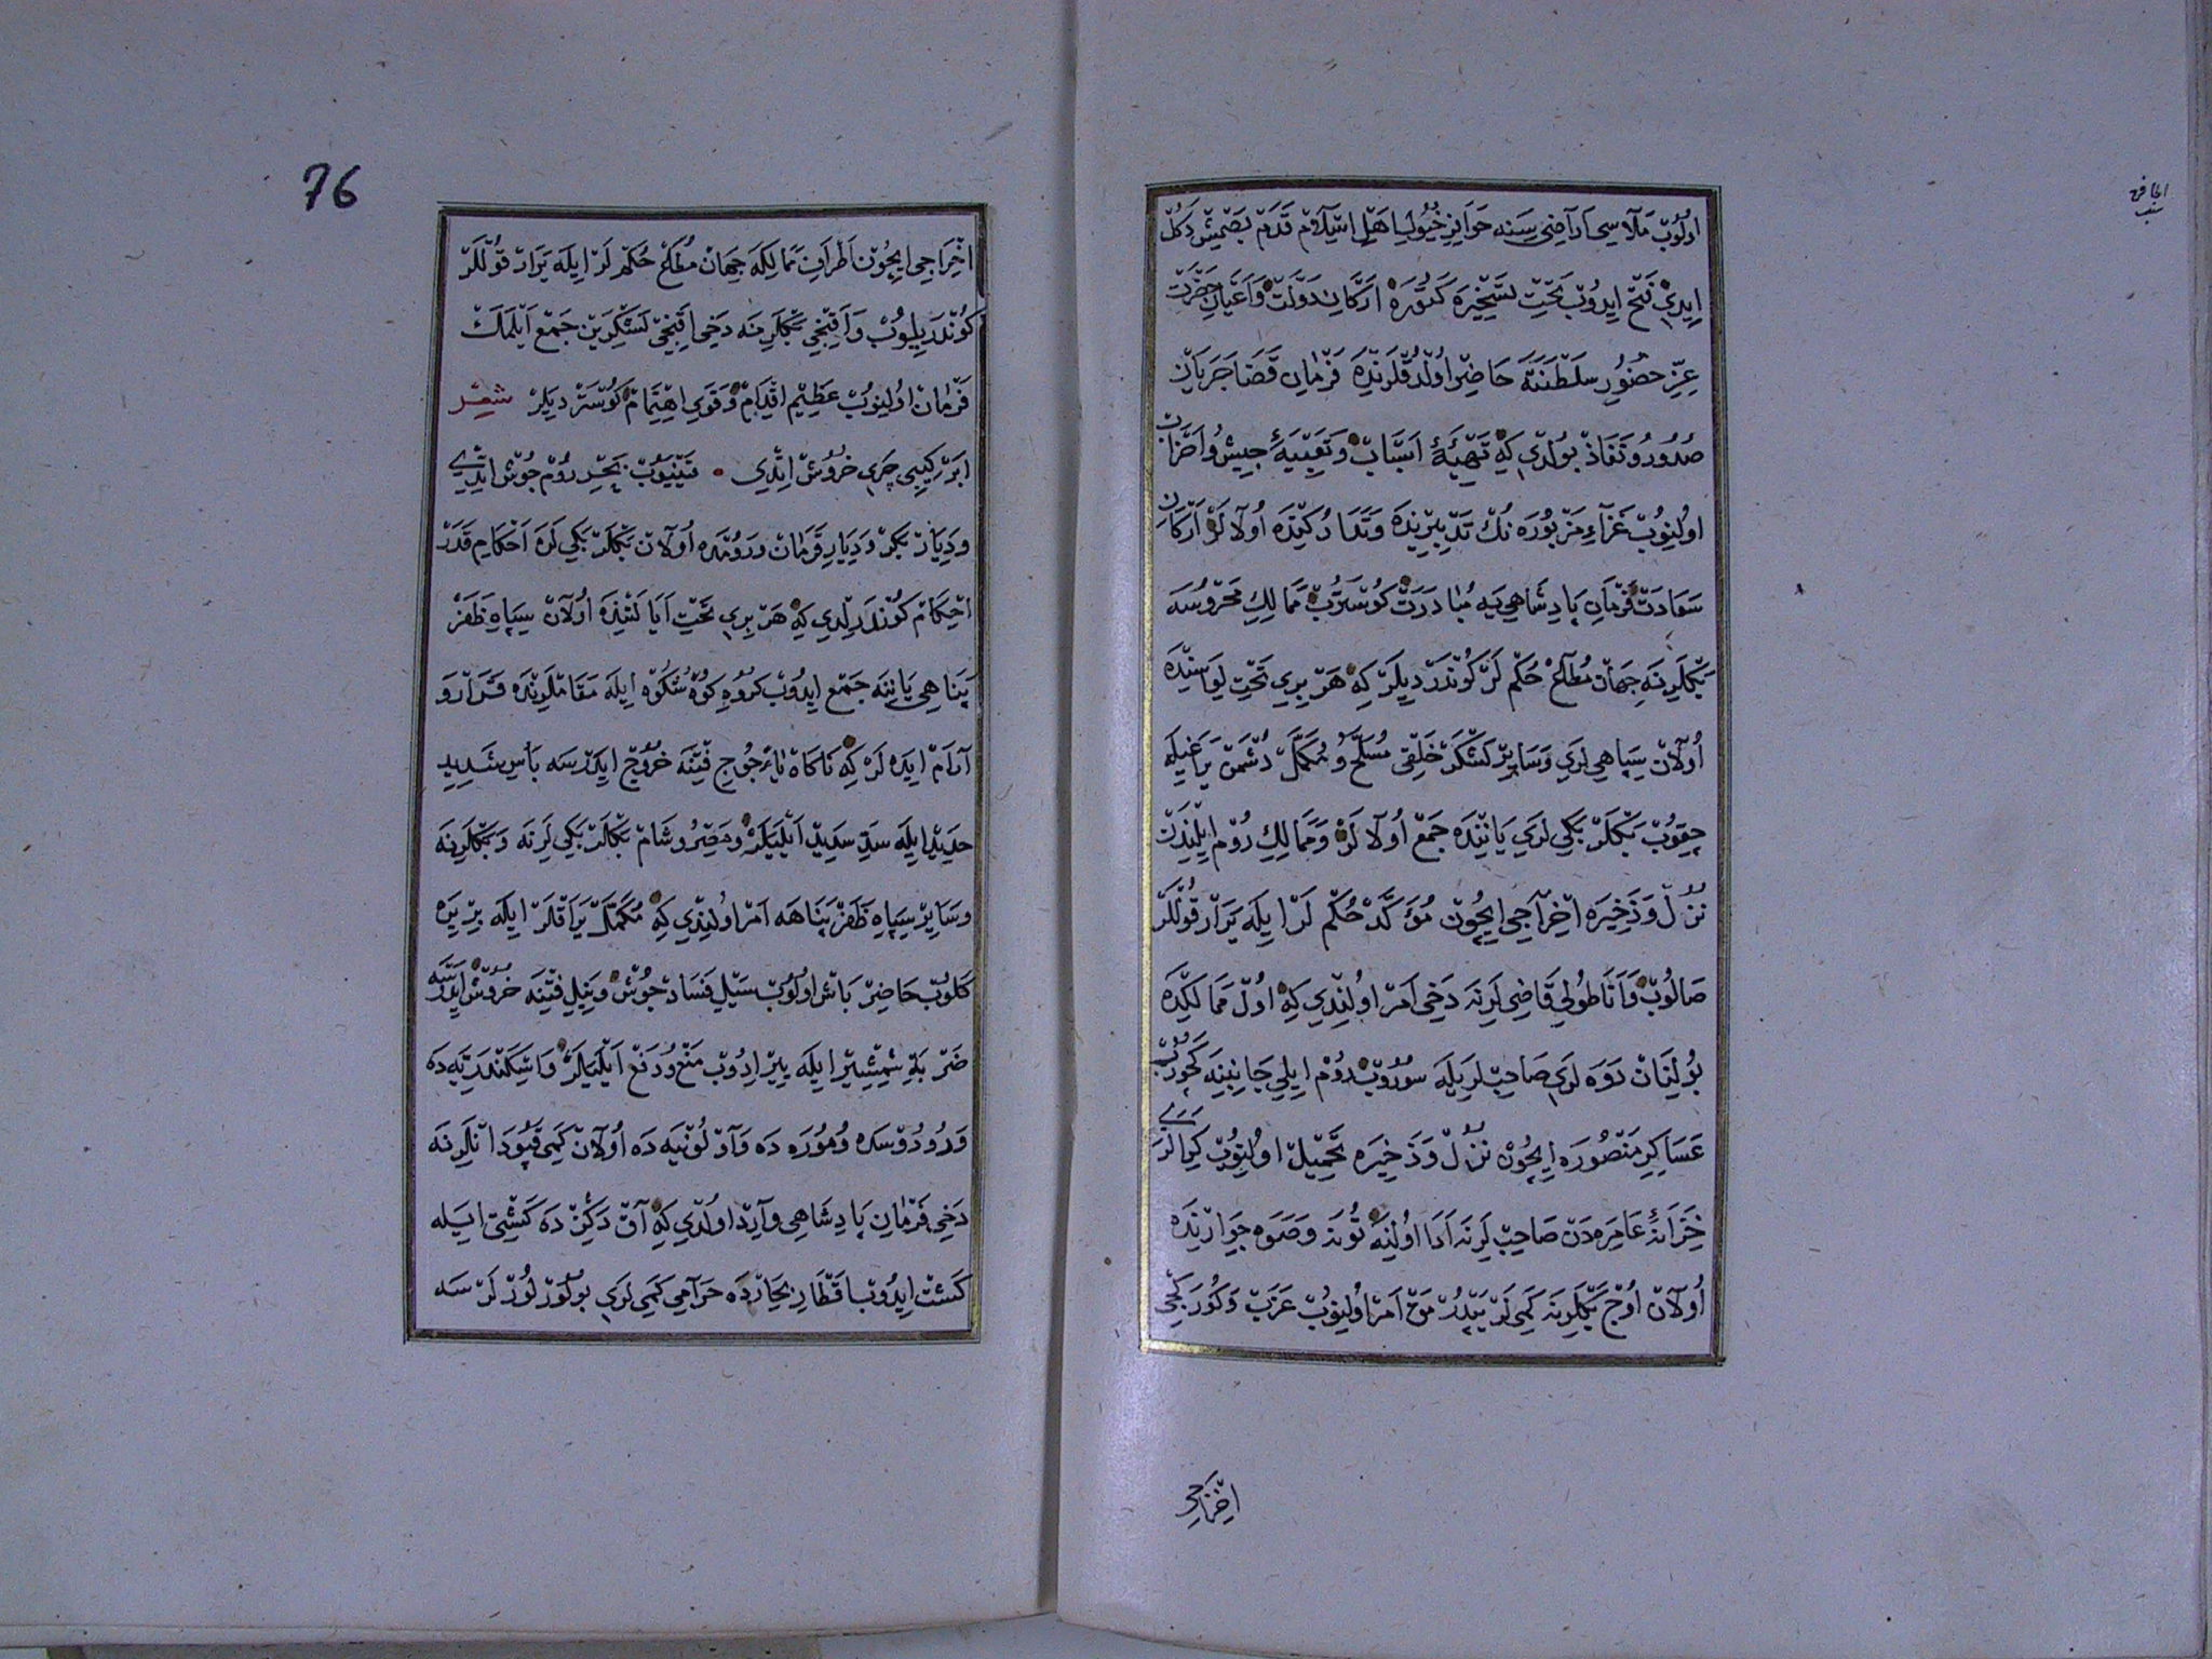 اولوب ملاسى اراضى سنه حوافر خيول اهل اسلام قدم بصمش دكل
ايدى فتح ايدوب تحت تسخيره كتوره اركان دولت و اعيان حضرت
عز حضور سلطنته حاضر اولدقلرنده فرمان قضا جريان
صدور و نفاذ بولدى كه تهيئه اسباب و تعبيه جيش و احزاب
اولنوب غزاء مزبوره نك تدبيرنده و تداركنده اولالر اركان
سعادت فرمان پادشاهى يه مبادرت كوسترب ممالك محروسه
بكلرينه جهان مطاع حكم لر كوندرديلر كه هر برى تحت لواسنده
اولان سپاهى لرى و ساير لشكر خلقى مسلح و مكمل دشمن يراغيله
چقوب بكلر بكى لرى ياننده جمع اولالر و ممالك روم ايلندن
نزل و ذخيره اخراجى ايچون مؤكد حكم لر ايله يرار قوللر
صالوب و اناطولى قاضى لرنه دخى امر اولندى كه اول ممالكده
بولنان دوه لرى صاحب لريله سوروب روم ايلى جانبنه كچورب
عساكر منصوره ايچون نزل و ذخيره تحميل اولنوب كرالرى
خزانه عامره دن صاحب لرنه ادا اولنه تونه و صوه جوارنده
اولان اوج بكلرينه كمى لر يپدرمق امر اولنوب عزب و كوركجى
اخراجى
76
اخراجى ايچون اطراف ممالكه جهان مطاع حكم لر ايله يرار قوللر
كوندريلوب و اقنجى بكلرينه دخى اقنجى لشكرين جمع ايلمك
فرمان اولنوب عظيم اقدام و قوى اهتمام كوسترديلر شعر
ابر كبى چرى خروش ايتدى • قينيوب بحر روم جوش ايتدى
و ديار بكر و ديار قرمان و رومده اولان بكلر بكى لره احكام قدر
احكام كوندرلدى كه هر برى تحت ايالتنده اولان سپاه ظفر
پناهى ياننه جمع ايدوب كروه كوه شكوه ايله مقاملرنده قرار و
آرام ايده لر كه ناكاه يأجوج فتنه خروج ايدرسه بأس شديد
حديد ايله سد سديد ايليلر و مصر و شام بكلر بكى لرنه و بكلرينه
و ساير سپاه ظفر پناهه امر اولندى كه مكمل يراقلر ايله بر يره
كلوب حاضر باش اولوب سيل فساد جوش و نيل فتنه خروش ايدرسه
ضربه شمشير ايله يير ايدوب منع و دفع ايليلر و اسكندريه ده
و رودوسده و موره ده و آولونيه ده اولان كمى قپودانلرنه
دخى فرمان پادشاهى وارد اولدى كه آق دكزده كشتى ايله
كشت ايدوب اقطار بحارده حرامى كمى لرى بولورلورلر سه